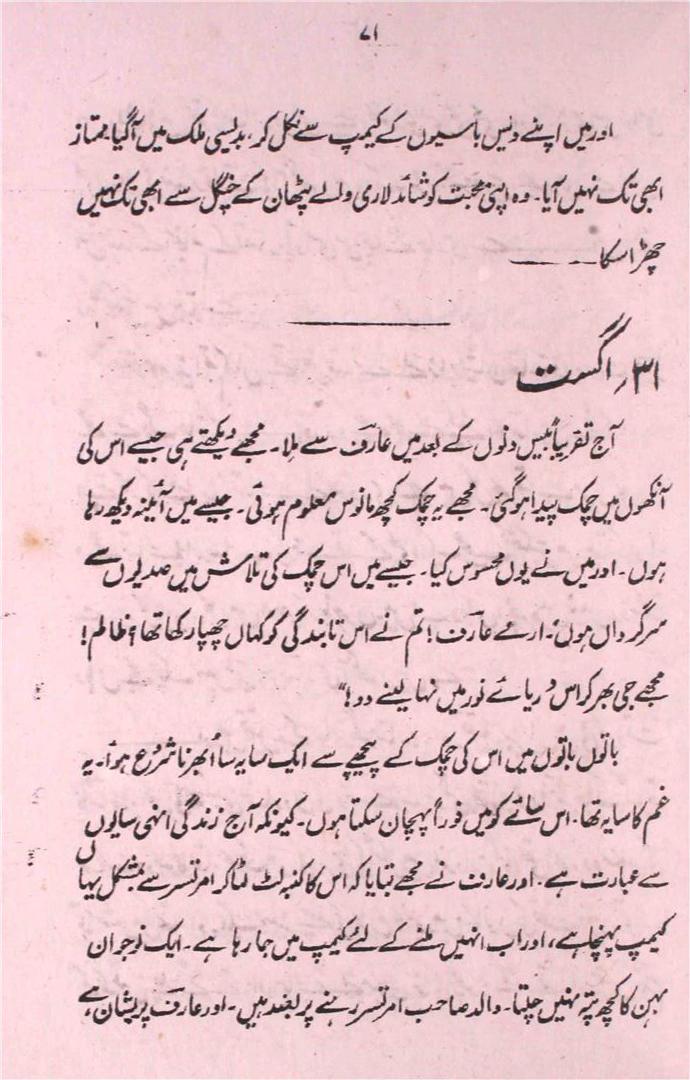 ۷۱
اور میں اپنے دیس باسیوں کے کیمپ سے نکل کر، بدلیسی ملک میں آگیا۔ ممتاز
ابھی تک نہیں آیا۔ وہ اپنی محبت کو شائد لاری والے پٹھان کے چنگل سے ابھی تک نہیں
چھڑا سکا ــــــــ
۳۱؍ اگست
آج تقریباً بیس دنوں کے بعد میں عارف سے ملا۔ مجھے دیکھتے ہی جیسے اس کی
آنکھوں میں چمک پیدا ہو گئی۔ مجھے یہ چمک کچھ مانوس معلوم ہوئی۔ جیسے میں آئینہ دیکھ رہا
ہوں۔ اور میں نے یوں محسوس کیا۔ جیسے میں اس چمک کی تلاش میں صدیوں سے
سرگرداں ہوں۔ ارے عارف! تم نے اس تابندگی کو کہاں چھپا رکھا تھا؟ ظالم!
مجھے جی بھر کر اس دریائے نور میں نہا لینے دو!"
باتوں باتوں میں اس کی چمک کے پیچھے سے ایک سایہ سا اُبھرنا شروع ہوا۔ یہ
غم کا سایہ تھا۔ اس سائے کو میں فوراً پہچان سکتا ہوں۔ کیونکہ آج زندگی انہی سایوں
سے عبارت ہے۔ اور عارف نے مجھے بتایا کہ اس کا کنبہ لٹ لٹا کر امرتسر سے بمشکل یہاں
کیمپ پہنچا ہے، اور اب انہیں ملنے کے لئے کیمپ میں جا رہا ہے۔ ایک نوجوان
بہن کا کچھ پتہ نہیں چلتا۔ والد صاحب امرتسر رہنے پر بضد ہیں۔ اور عارف پریشان ہے،